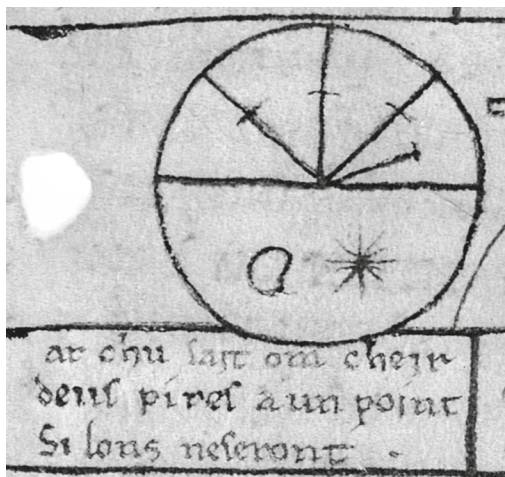 ar chu fait om cheir
deus pires a un point
Si lons neseront .